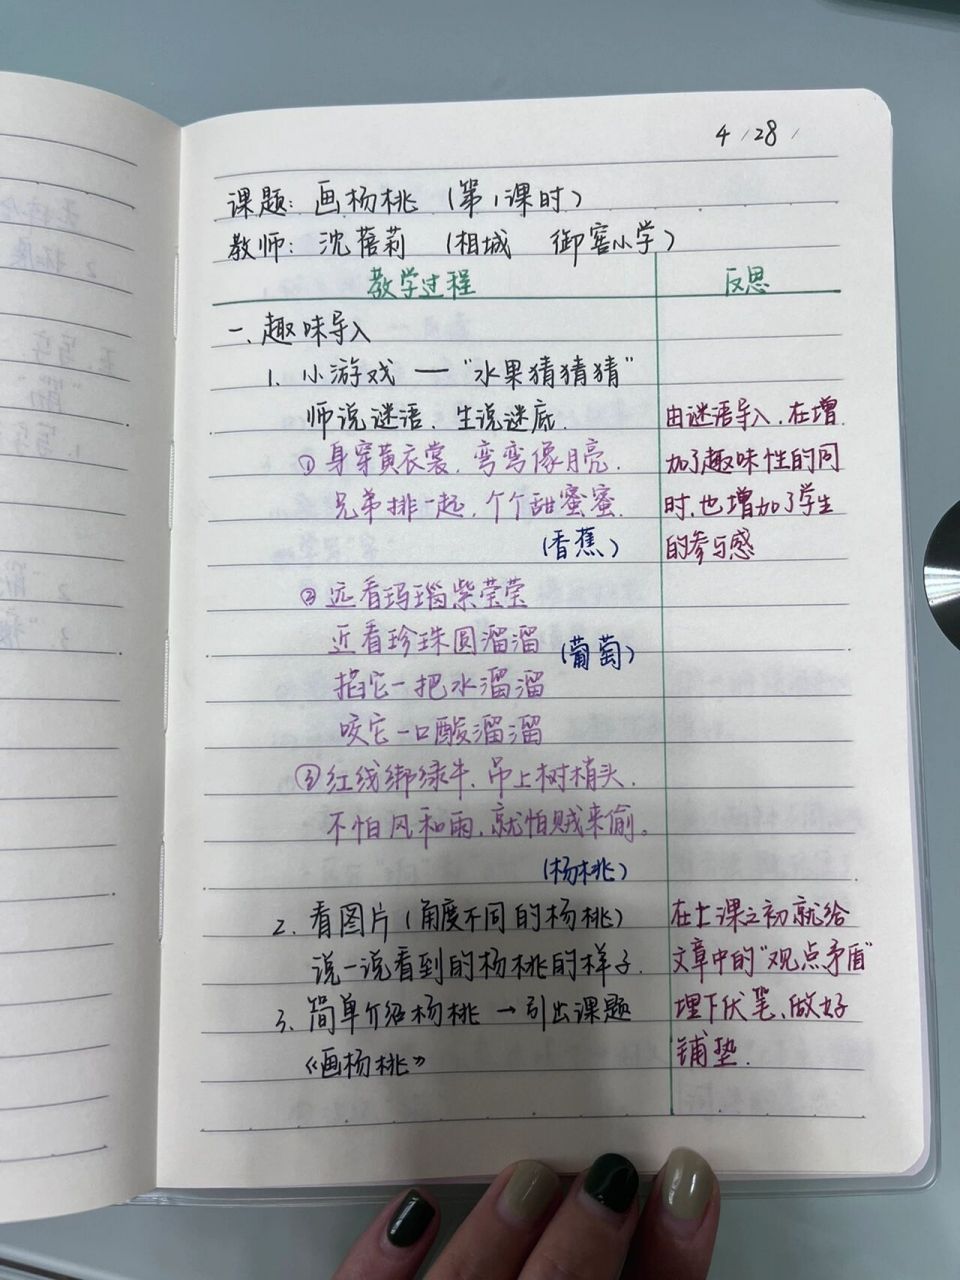 4/28/
课题：画杨桃（第1课时）
教师：沈蓓莉（相城 御窑小学）
教学过程
反思
一、趣味导入
1. 小游戏 — “水果猜猜猜”
师说谜语、生说谜底.
①身穿黄衣裳，弯弯像月亮.
兄弟排一起，个个甜蜜蜜.
（香蕉）
② 远看玛瑙紫莹莹
近看珍珠圆溜溜
（葡萄）
掐它一把水溜溜
咬它一口酸溜溜
③红线绑绿牛、吊上树梢头.
不怕风和雨，就怕贼来偷。
（杨桃）
2. 看图片（角度不同的杨桃）
说一说看到的杨桃的样子.
3. 简单介绍杨桃 → 引出课题
《画杨桃》
由谜语导入，在增
加了趣味性的同
时，也增加了学生
的参与感
在上课之初就给
文章中的“观点矛盾”
埋下伏笔、做好
铺垫.